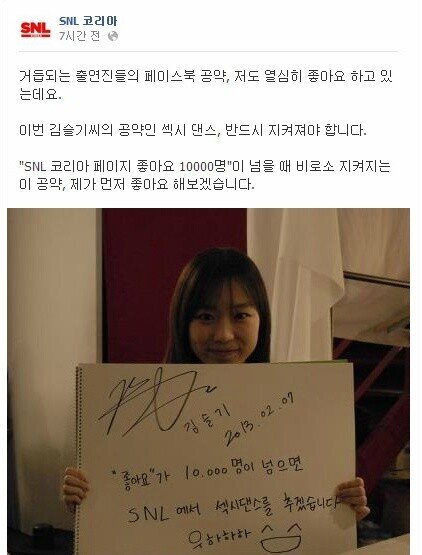 SNL 코리아
SNL
KOREA
7시간 전
거듭되는 출연진들의 페이스북 공약, 저도 열심히 좋아요 하고 있
는데요.
이번 김슬기씨의 공약인 섹시 댄스, 반드시 지켜져야 합니다.
"SNL 코리아 페이지 좋아요 10000명"이 넘을 때 비로소 지켜지는
이 공약, 제가 먼저 좋아요 해보겠습니다.
김슬기
2013.02.07
"좋아요"가 10.000명이 넘으면
SNL에서 섹시댄스를 추겠습니다
우하하하